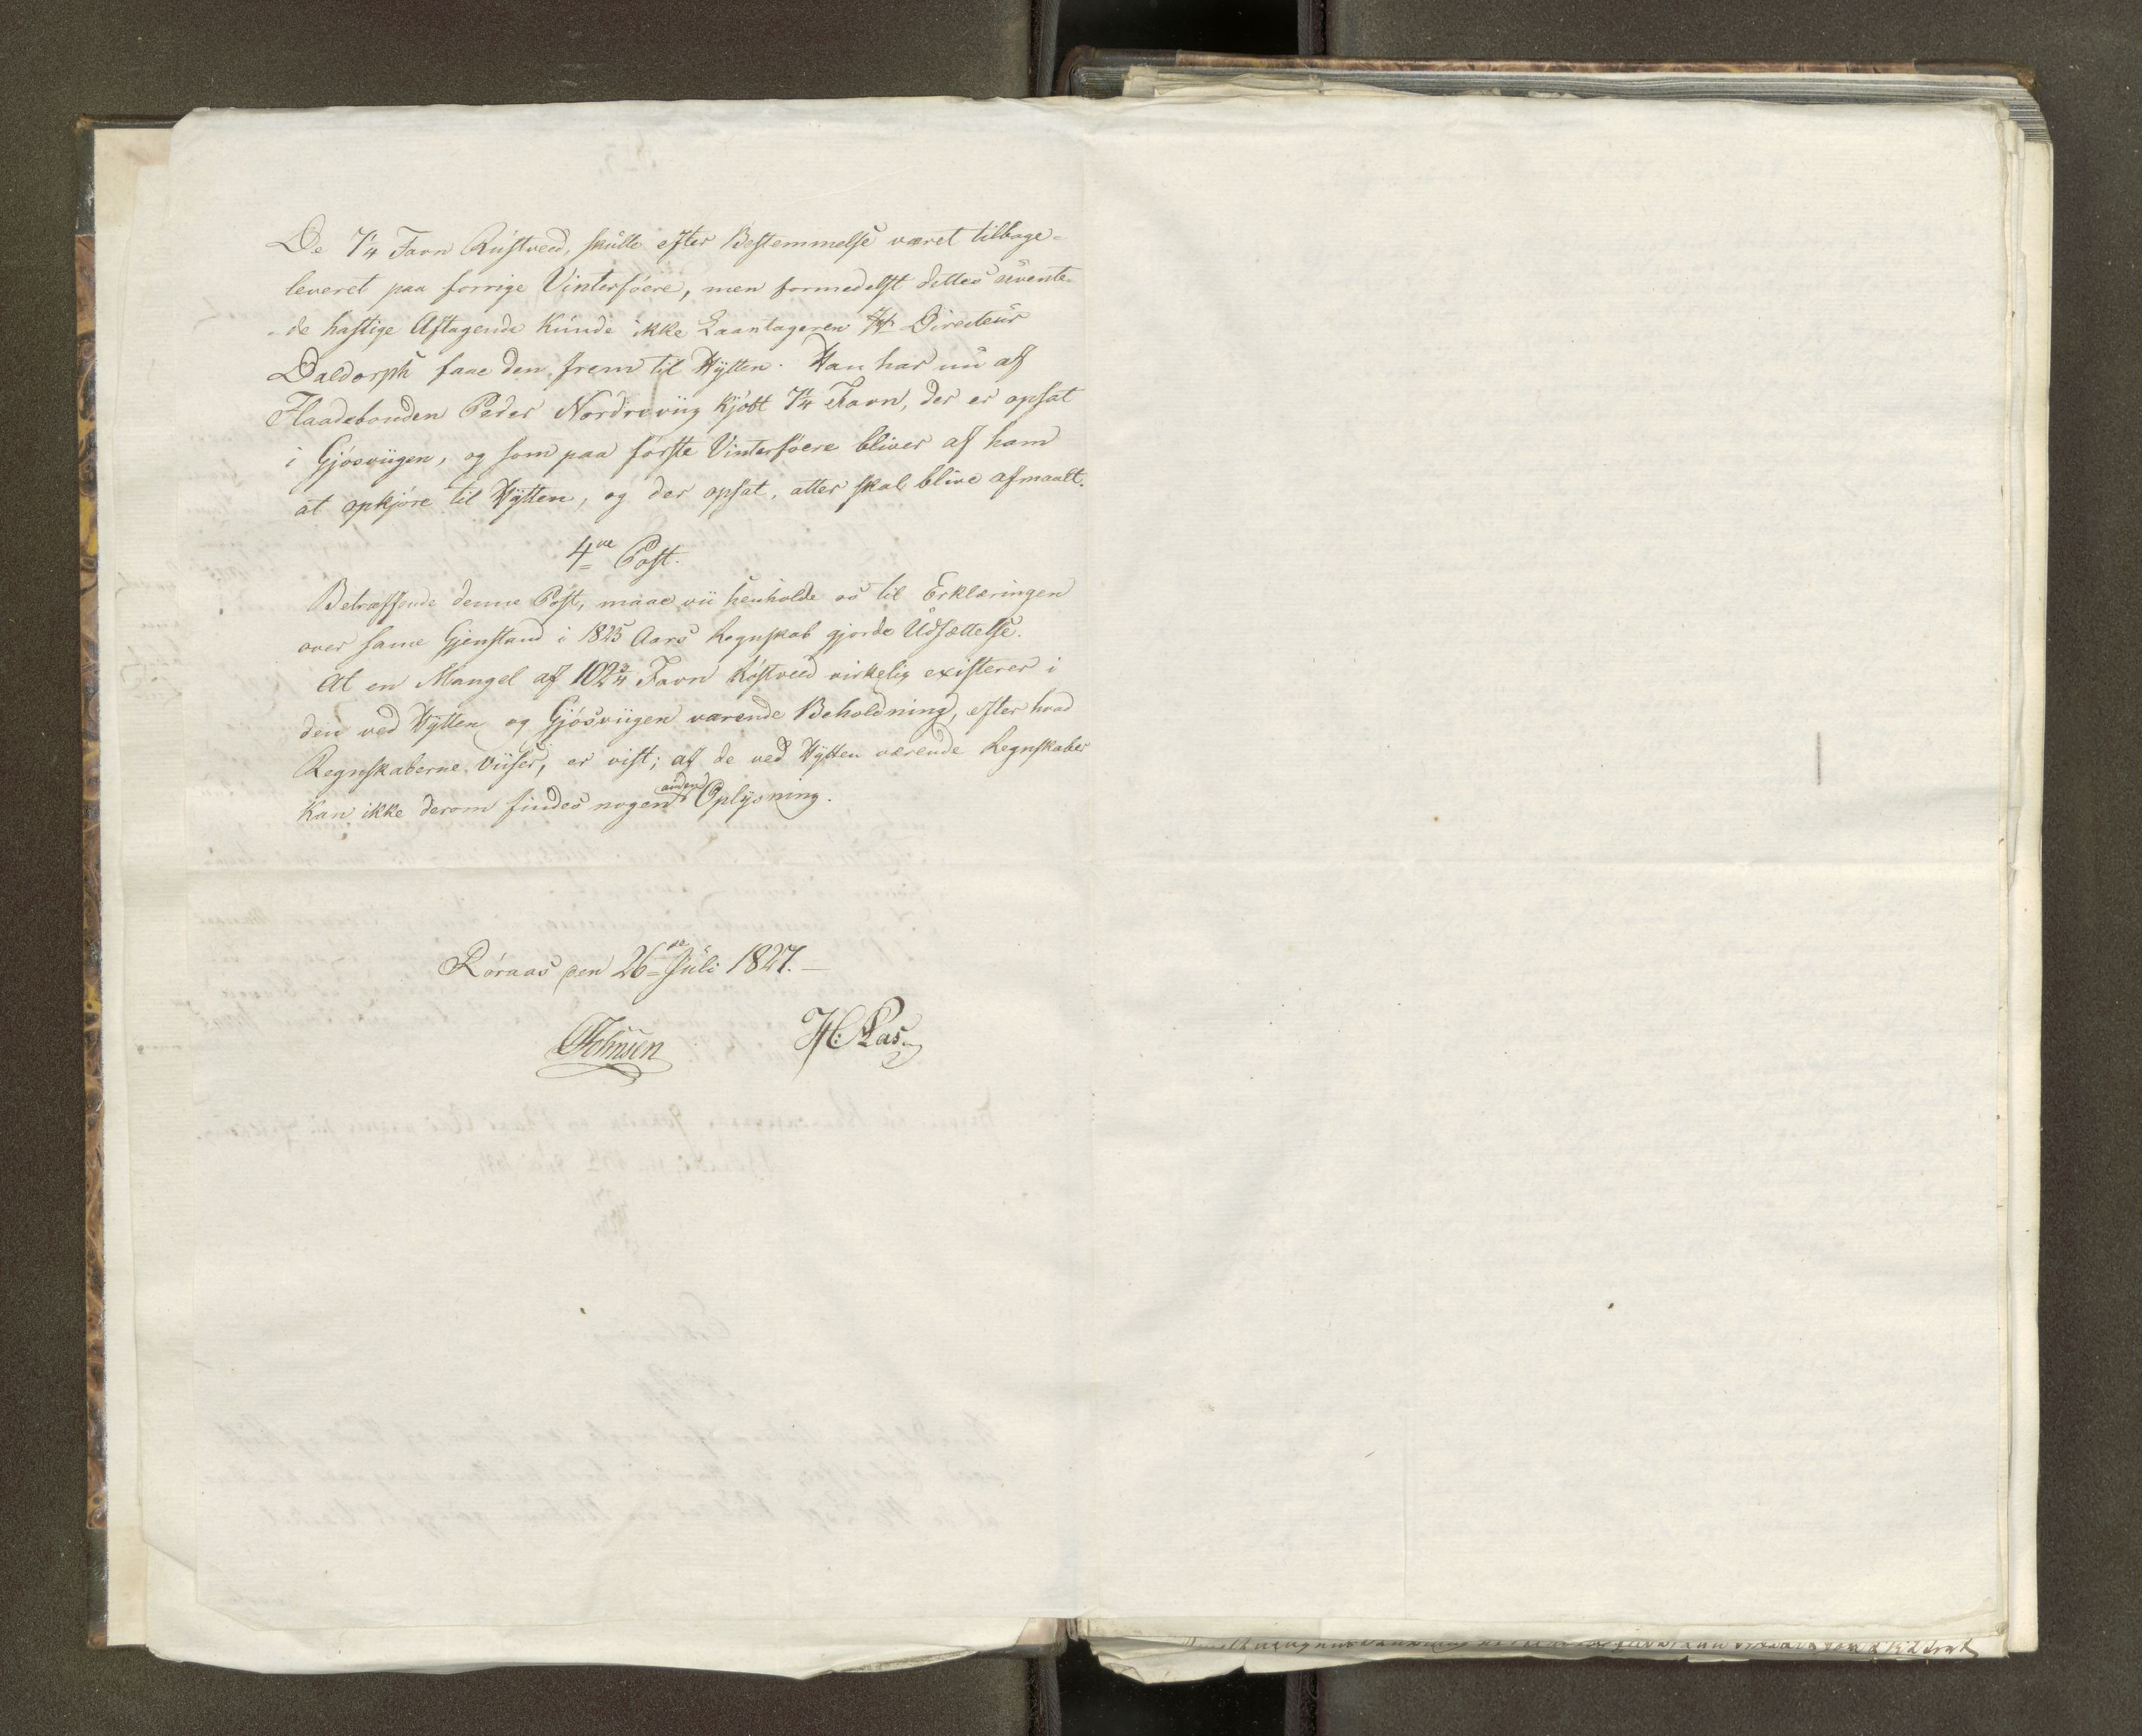 De 7¼ Favn Rustveed, skulle efter Bestemmelse været tilbage-
leveret paa forrige Vinterføere, men formedelst dettes uvente-
-de hastige Aftagende kunde ikke Laantageren Hr Directeur
Daldorph faae den frem til Hytten. Han har nu af
Flaadebonden Peder Nordreviig kjøbt 7¼ Favn, der er opsat
i Gjøsviigen, og som paa første Vinterføere bliver af ham
at opkjøre til Hytten, og der opsat, atter skal blive afmaalt.
4de Post.
Betræffende denne Post, maae vii henholde os til Erklæringen
over same Gjenstand i 1825 Aars Regnskab gjorde Udsættelse.
At en Mangel af 102¾ Favn Røstveed virkelig existerer i
den ved Hytten og Gjøsviigen værende Beholdning, efter hvad
Regnskaberne viiser, er vist; af de ved Hytten værende Regnskaber
kan ikke derom findes nogen anden Oplysning.
Røraas den 26de Juli 1827.
Johnsen H: Aas